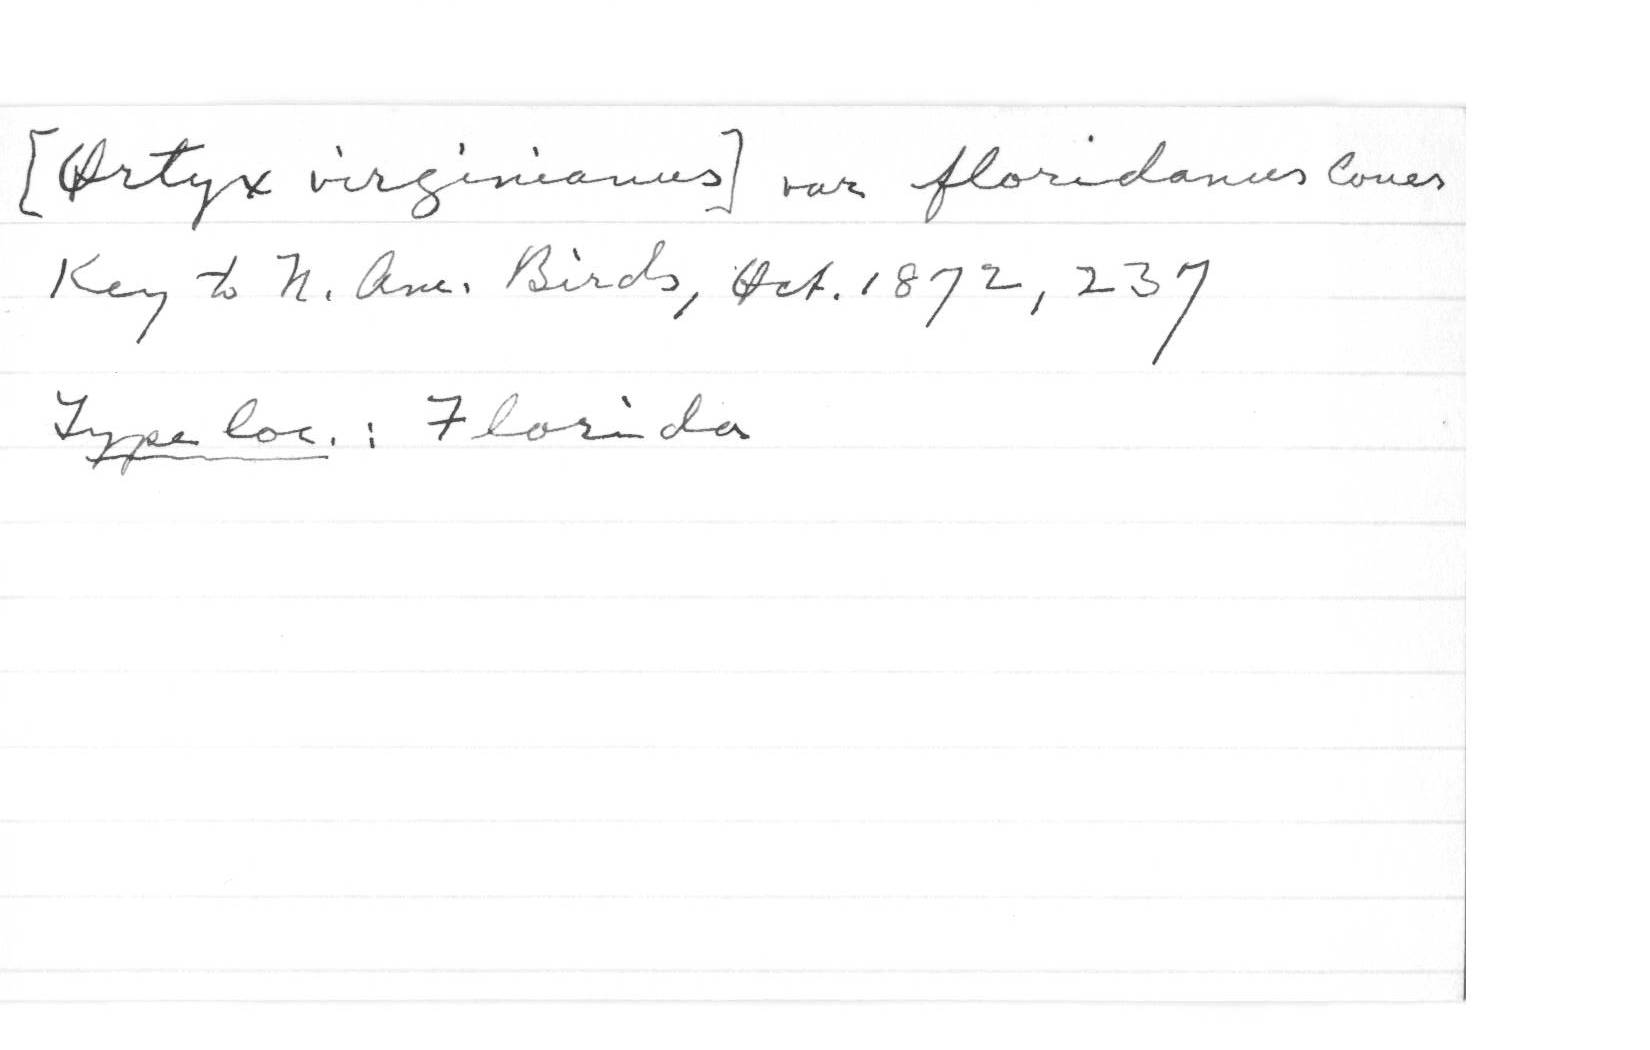 [Ortyx virginianus] var floridanus Coues
Key to N. Am. Birds, Oct. 1872, 237
Type loc.: Florida